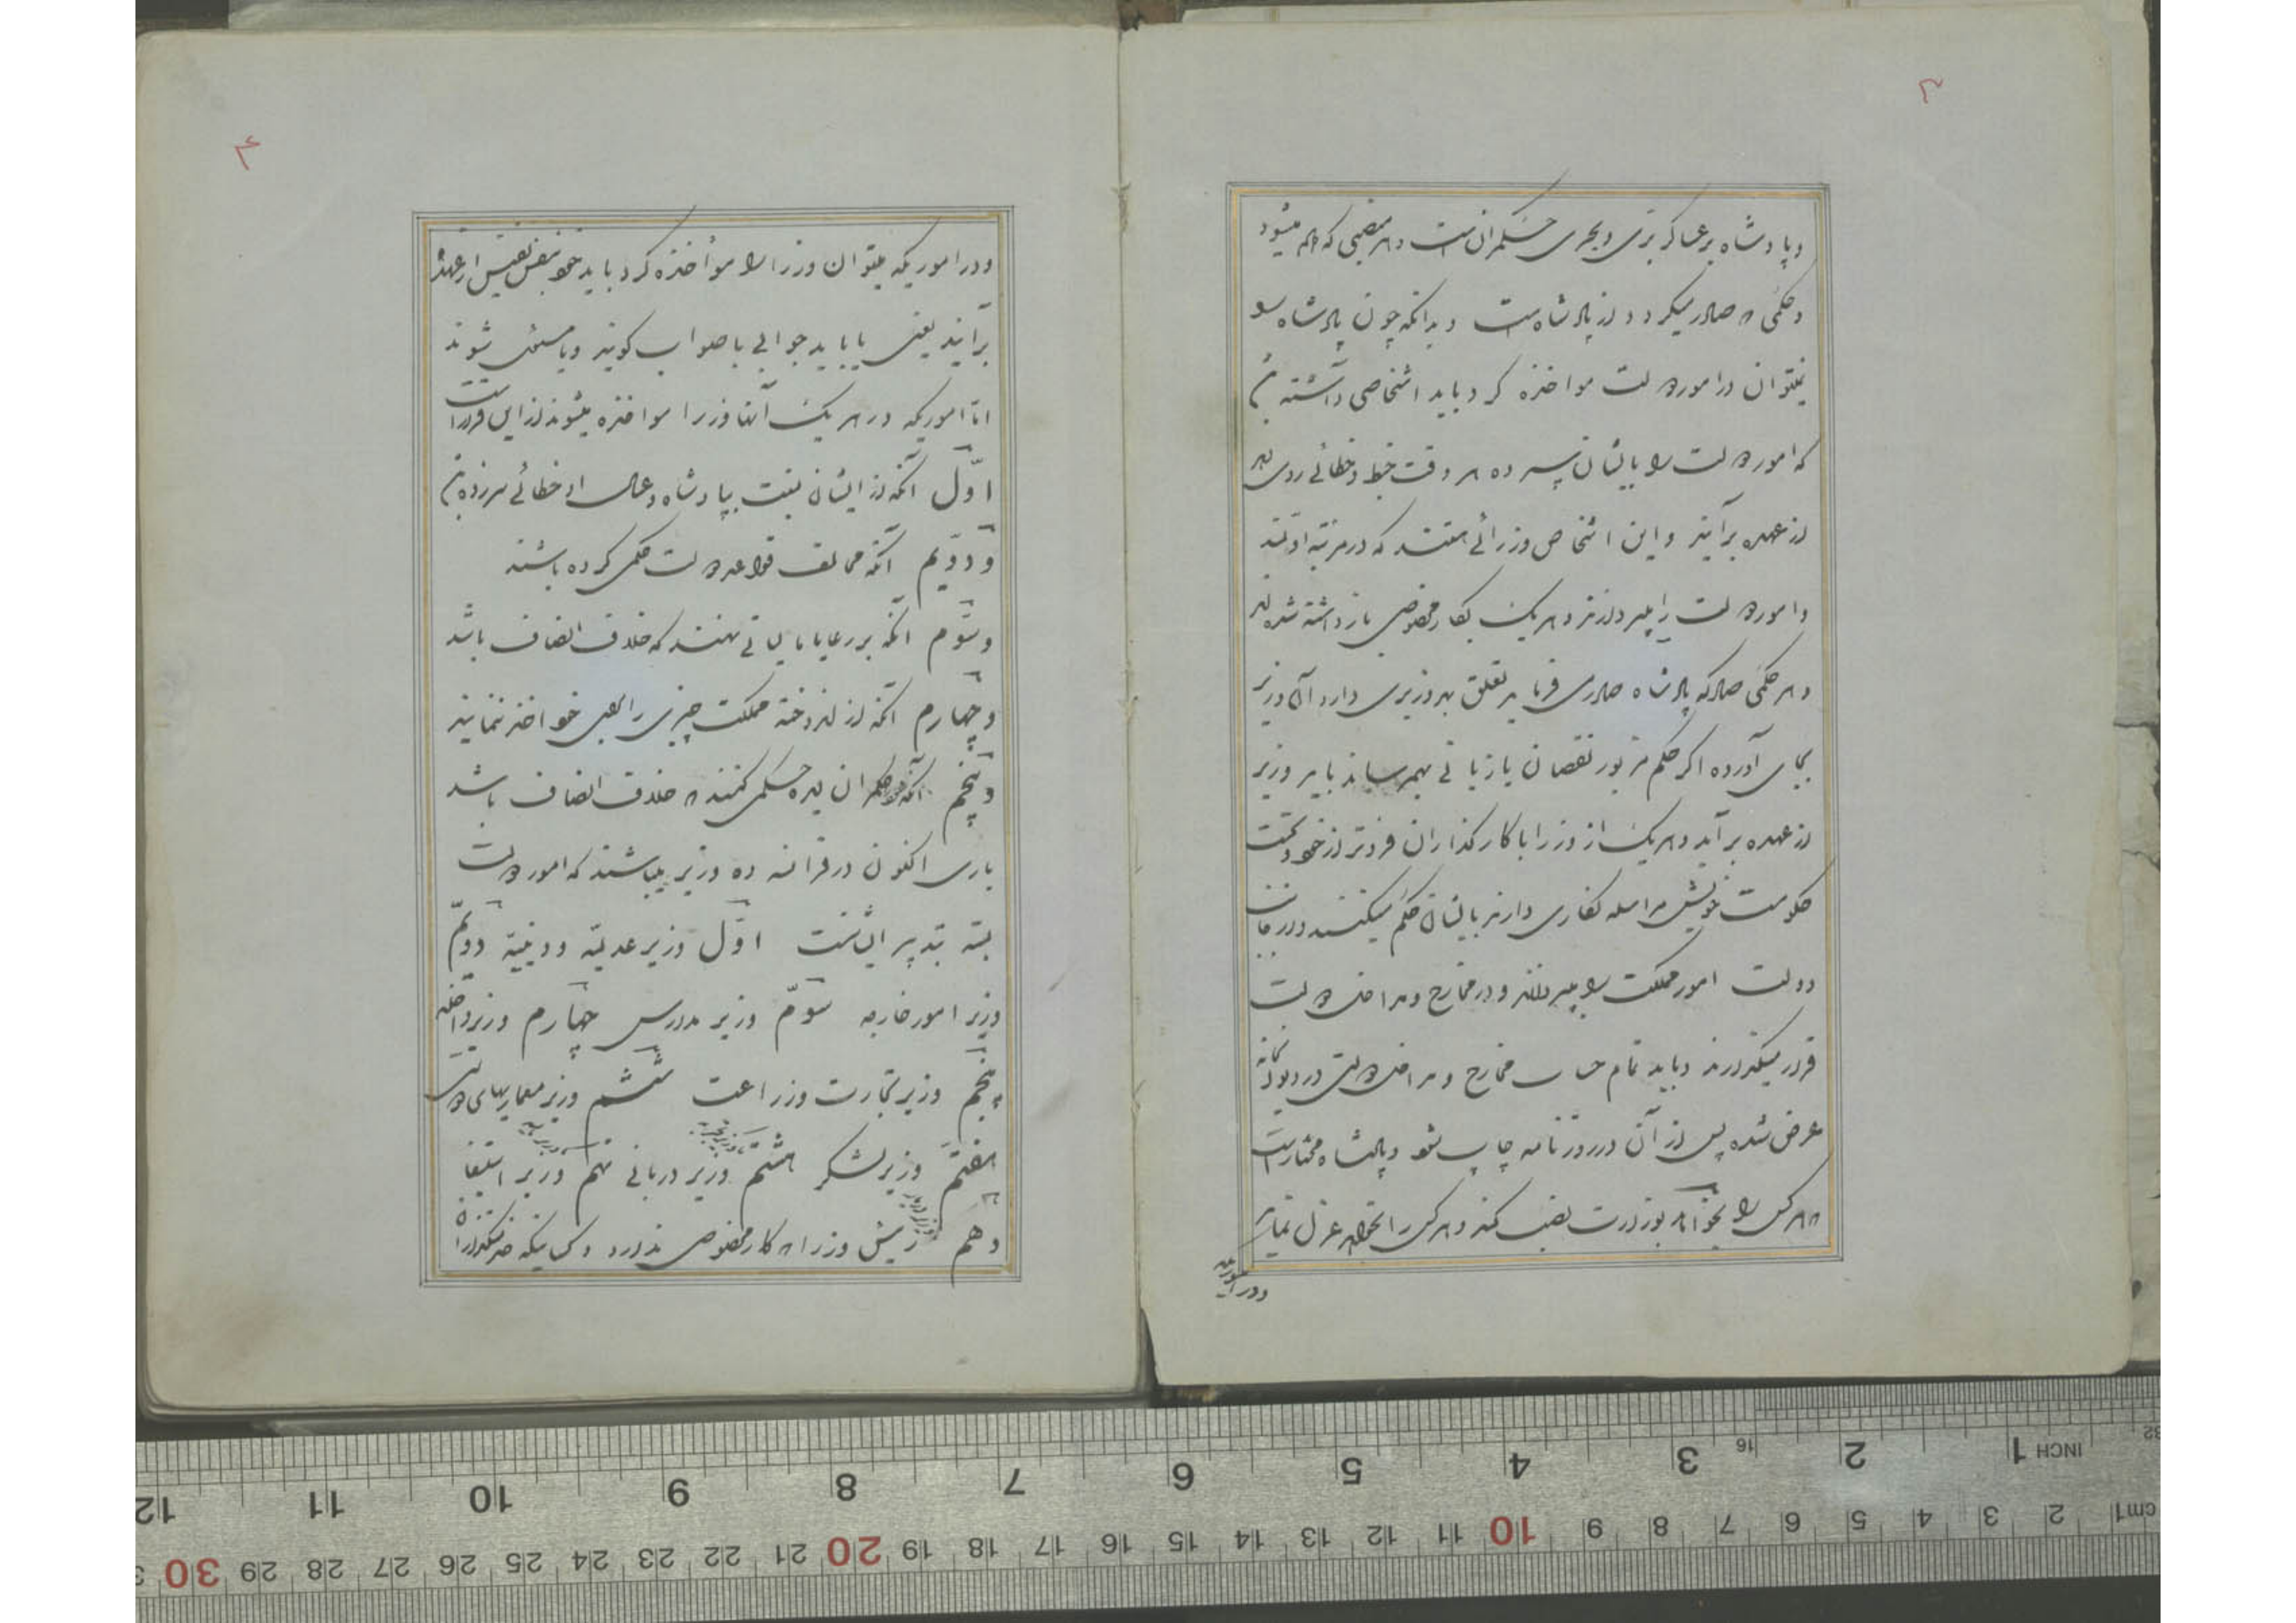 ۳
وپادشاه بر عساکر برّی و بحری حکمران است و هر منصبی که داده میشود
و حکمی که صادر میگردد از پادشاه است و بدانکه چون پادشاه را
نمیتوان در امور دولت مواخذه کرد باید اشخاصی داشته باشد
که امور دولت را بایشان سپرده هر وقت خبط و خطائی روی دهد
از عهده برآیند و این اشخاص وزرائی هستند که در مرتبه اولند
و امور دولت را میپردازند و هر یک بکار مخصوصی باز داشته شده‌اند
و هر حکمی که پادشاه صادر می فرماید تعلق بهر وزیری دارد آن وزیر
بجای آورده اگر حکم مزبور نقصان یا زیانی بهم رساند باید وزیر
از عهده برآید و هر یک از وزرا با کارگذاران فروتر از خود و تحت
حکومت خویش مراسله نگاری دارند بایشان حکم میکنند و در خانه
دولت امور مملکت را میپردازند و در مخارج و مداخل دولت
قرار میگذارند و باید تمام حساب مخارج و مداخل دولتی در دیوانخانه
عرض شده پس از آن در روزنامه چاپ شود و پادشاه مختار است
که هر کس را بخواهد بوزارت نصب کند و هر کس را نخواهد عزل نماید
ودر اموریکه
۴
ودر اموریکه میتوان وزرا را مواخذه کرد باید خود بنفس نفیس از عهده
برآیند یعنی یا باید جوابی باصواب گویند ویا مستعفی شوند
امّا اموریکه در هر یک آنها وزرا مواخذه میشوند از این قرار است
اوّل آنکه از ایشان نسبت بپادشاه و عمال او خطائی سرزده باشد
ودوّیم آنکه مخالف قواعد دولت حکمی کرده باشند
وسوّم آنکه بر رعایا مالیاتی نهند که خلاف انصاف باشد
وچهارم آنکه از اندوخته مملکت چیزی را بجهة خود اخذ نمایند
وپنجم آنکه حکمران بوده حکمی کنند که خلاف انصاف باشد
باری اکنون در فرانسه ده وزیر میباشند که امور دولت
بسته بتدبیر ایشانست اوّل وزیر عدلیّه و دینیّه دویّم
وزیر امور خارجه سوّم وزیر مدارس چهارم وزیر داخله
پنجم وزیر تجارت وزراعت ششم وزیر معماریهای دولت
هفتم وزیر لشکر هشتم وزیر دربانی نهم وزیر استیفا
دهم رئیس وزرا که کار مخصوصی ندارد و کسانیکه